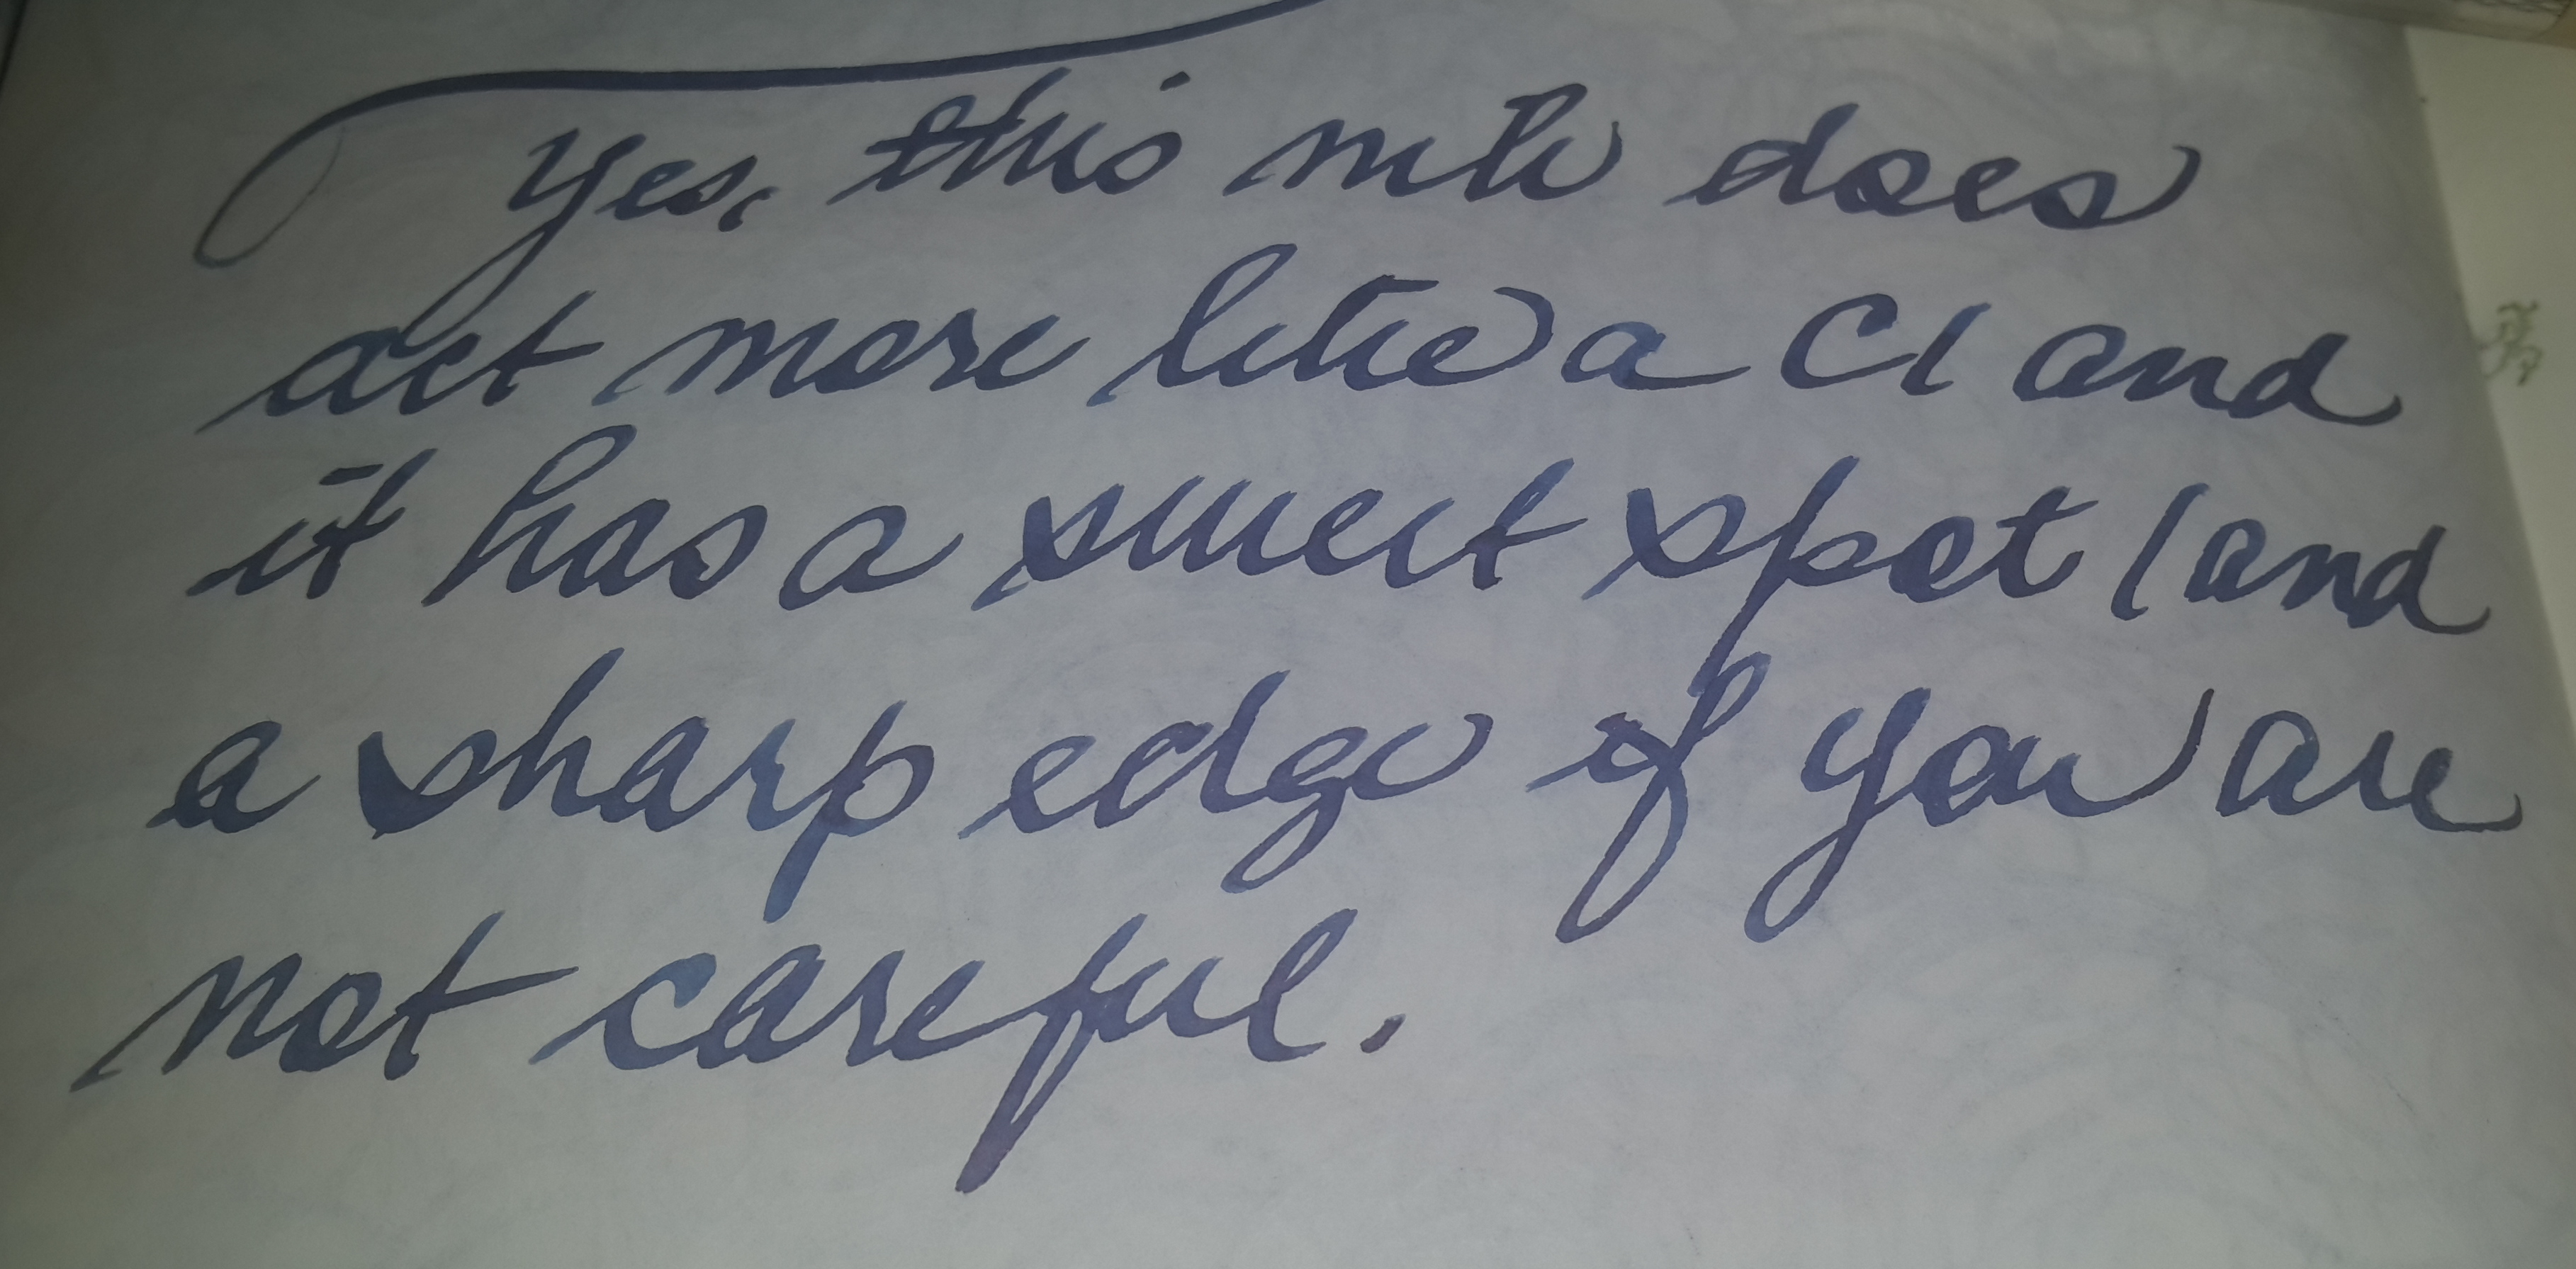 Yes, this nib does
act more like a CI and
it has a sweet spot (and
a sharp edge if you are
not careful.